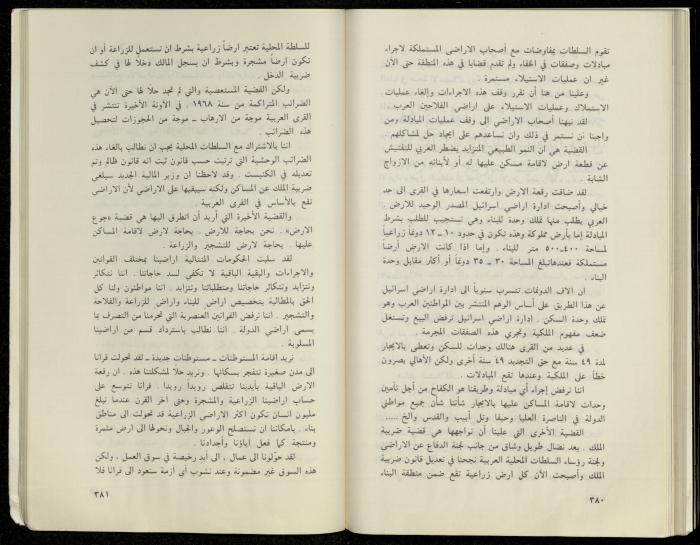 تقوم السلطات بمفاوضات مع أصحاب الاراضي المستملكة لاجراء
مبادلات وصفقات في الخفاء ولم تقدم قضايا في هذه المنطقة حتى الآن
غير ان عمليات الاستيلاء مستمرة .
وعلينا من هنا أن نقرر وقف هذه الاجراءات وإلغاء عمليات
الاستملاك وعمليات الاستيلاء على اراضي الفلاحين العرب .
لقد نبهنا أصحاب الاراضي الى وقف عمليات المبادلة ومن
واجبنا أن نستمر في ذلك وان نساعدهم على ايجاد حل لمشاكلهم .
القضية هي ان النمو الطبيعي المتزايد يضطر العربي للتفتيش
عن قطعة ارض لاقامة مسكن عليها له أو لأبنائه من الازواج
الشابة .
لقد ضاقت رقعة الارض وارتفعت اسعارها في القرى الى حد
خيالي وأصبحت ادارة اراضي اسرائيل المصدر الوحيد للارض .
العربي يطلب منها تملك وحدة للبناء وهي تستجيب للطلب بشرط
المبادلة إما بأرض مملوكة وهذه تكون في حدود ١٠ – ١٢ دونماً زراعياً
لمساحة ٤٠٠–٥٠٠ متر للبناء . وإما اذا كانت الارض أرضاً
مستملكة فعندها تبلغ المساحة ٣٠ – ٣٥ دونماً أو أكثر مقابل وحدة
البناء .
ان الاف الدونمات تتسرب سنوياً الى ادارة اراضي اسرائيل
عن هذا الطريق على أساس الوهم المنتشر بين المواطنين العرب وهو
تملك وحدة السكن . ادارة اراضي اسرائيل ترفض البيع وتستغل
ضعف مفهوم الملكية وتجري هذه الصفقات المجرمة .
في عديد من القرى هنالك وحدات للسكن وتعطى بالايجار
لمدة ٤٩ سنة مع حق التجديد ٤٩ سنة أخرى ولكن الأهالي يصرون
خطأ على الملكية وعندها تقع المبادلات .
اننا نرفض إجراء أي مبادلة وطريقنا هو الكفاح من أجل تأمين
وحدات لاقامة المساكن عليها بالايجار شأننا شأن جميع مواطني
الدولة في الناصرة العليا وحيفا وتل أبيب والقدس والخ .....
القضية الأخرى التي علينا أن نواجهها هي قضية ضريبة
الملك . بعد نضال طويل وشاق من جانب لجنة الدفاع عن الاراضي
ولجنة رؤساء السلطات المحلية العربية نجحنا في تعديل قانون ضريبة
الملك وأصبحت الآن كل ارض زراعية تقع ضمن منطقة البناء
٣٨٠
للسلطة المحلية تعتبر ارضاً زراعية بشرط ان تستعمل للزراعة أو ان
تكون ارضاً مشجرة وبشرط ان يسجل المالك دخلاً لها في كشف
ضريبة الدخل .
ولكن القضية المستعصية والتي لم نجد حلا لها حتى الآن هي
الضرائب المتراكمة من سنة ١٩٦٨ . في الآونة الأخيرة تنتشر في
القرى العربية موجة من الارهاب – موجة من الحجوزات لتحصيل
هذه الضرائب .
اننا بالاشتراك مع السلطات المحلية يجب ان نطالب بالغاء هذه
الضرائب الوحشية التي ترتبت حسب قانون ثبت انه قانون ظالم وتم
تعديله في الكنيست . وقد لاحظنا ان وزير المالية الجديد سيلغي
ضريبة الملك عن المساكن ولكنه سيبقيها على الاراضي لأن الاراضي
تقع بالأساس في القرى العربية .
والقضية الأخيرة التي أريد أن اتطرق اليها هي قضية «جوع
الارض» . نحن بحاجة للارض . بحاجة لارض لاقامة المساكن
عليها . بحاجة لارض للتشجير والزراعة .
لقد سلبت الحكومات المتتالية اراضينا بمختلف القوانين
والاجراءات والبقية الباقية لا تكفي لسد حاجاتنا . اننا نتكاثر
ونتزايد وتتكاثر حاجاتنا ومتطلباتنا وتتزايد . اننا مواطنون ولنا كل
الحق بالمطالبة بتخصيص اراض للبناء واراض للزراعة والفلاحة
والتشجير . اننا نرفض القوانين العنصرية التي تحرمنا من التصرف بما
يسمى اراضي الدولة . اننا نطالب باسترداد قسم من اراضينا
المسلوبة .
نريد اقامة المستوطنات – مستوطنات جديدة – لقد تحولت قرانا
الى مدن صغيرة تتفجر بسكانها . ونريد حلاً لمشكلتنا هذه . ان رقعة
الارض الباقية بأيدينا تتقلص رويداً رويدا . قرانا تتوسع على
حساب اراضينا الزراعية والمشجرة وحتى آخر القرن عندما نبلغ
مليون انسان تكون اكثر الاراضي الزراعية قد تحولت الى مناطق
بناء . بامكاننا ان نستصلح الوعور والجبال ونحولها الى ارض مثمرة
ومنتجة كما فعل آباؤنا وأجدادنا .
لقد حوّلونا الى عمال . الى أيد رخيصة في سوق العمل . ولكن
هذه السوق غير مضمونة وعند نشوب أي أزمة سنعود الى قرانا فلا
٣٨١